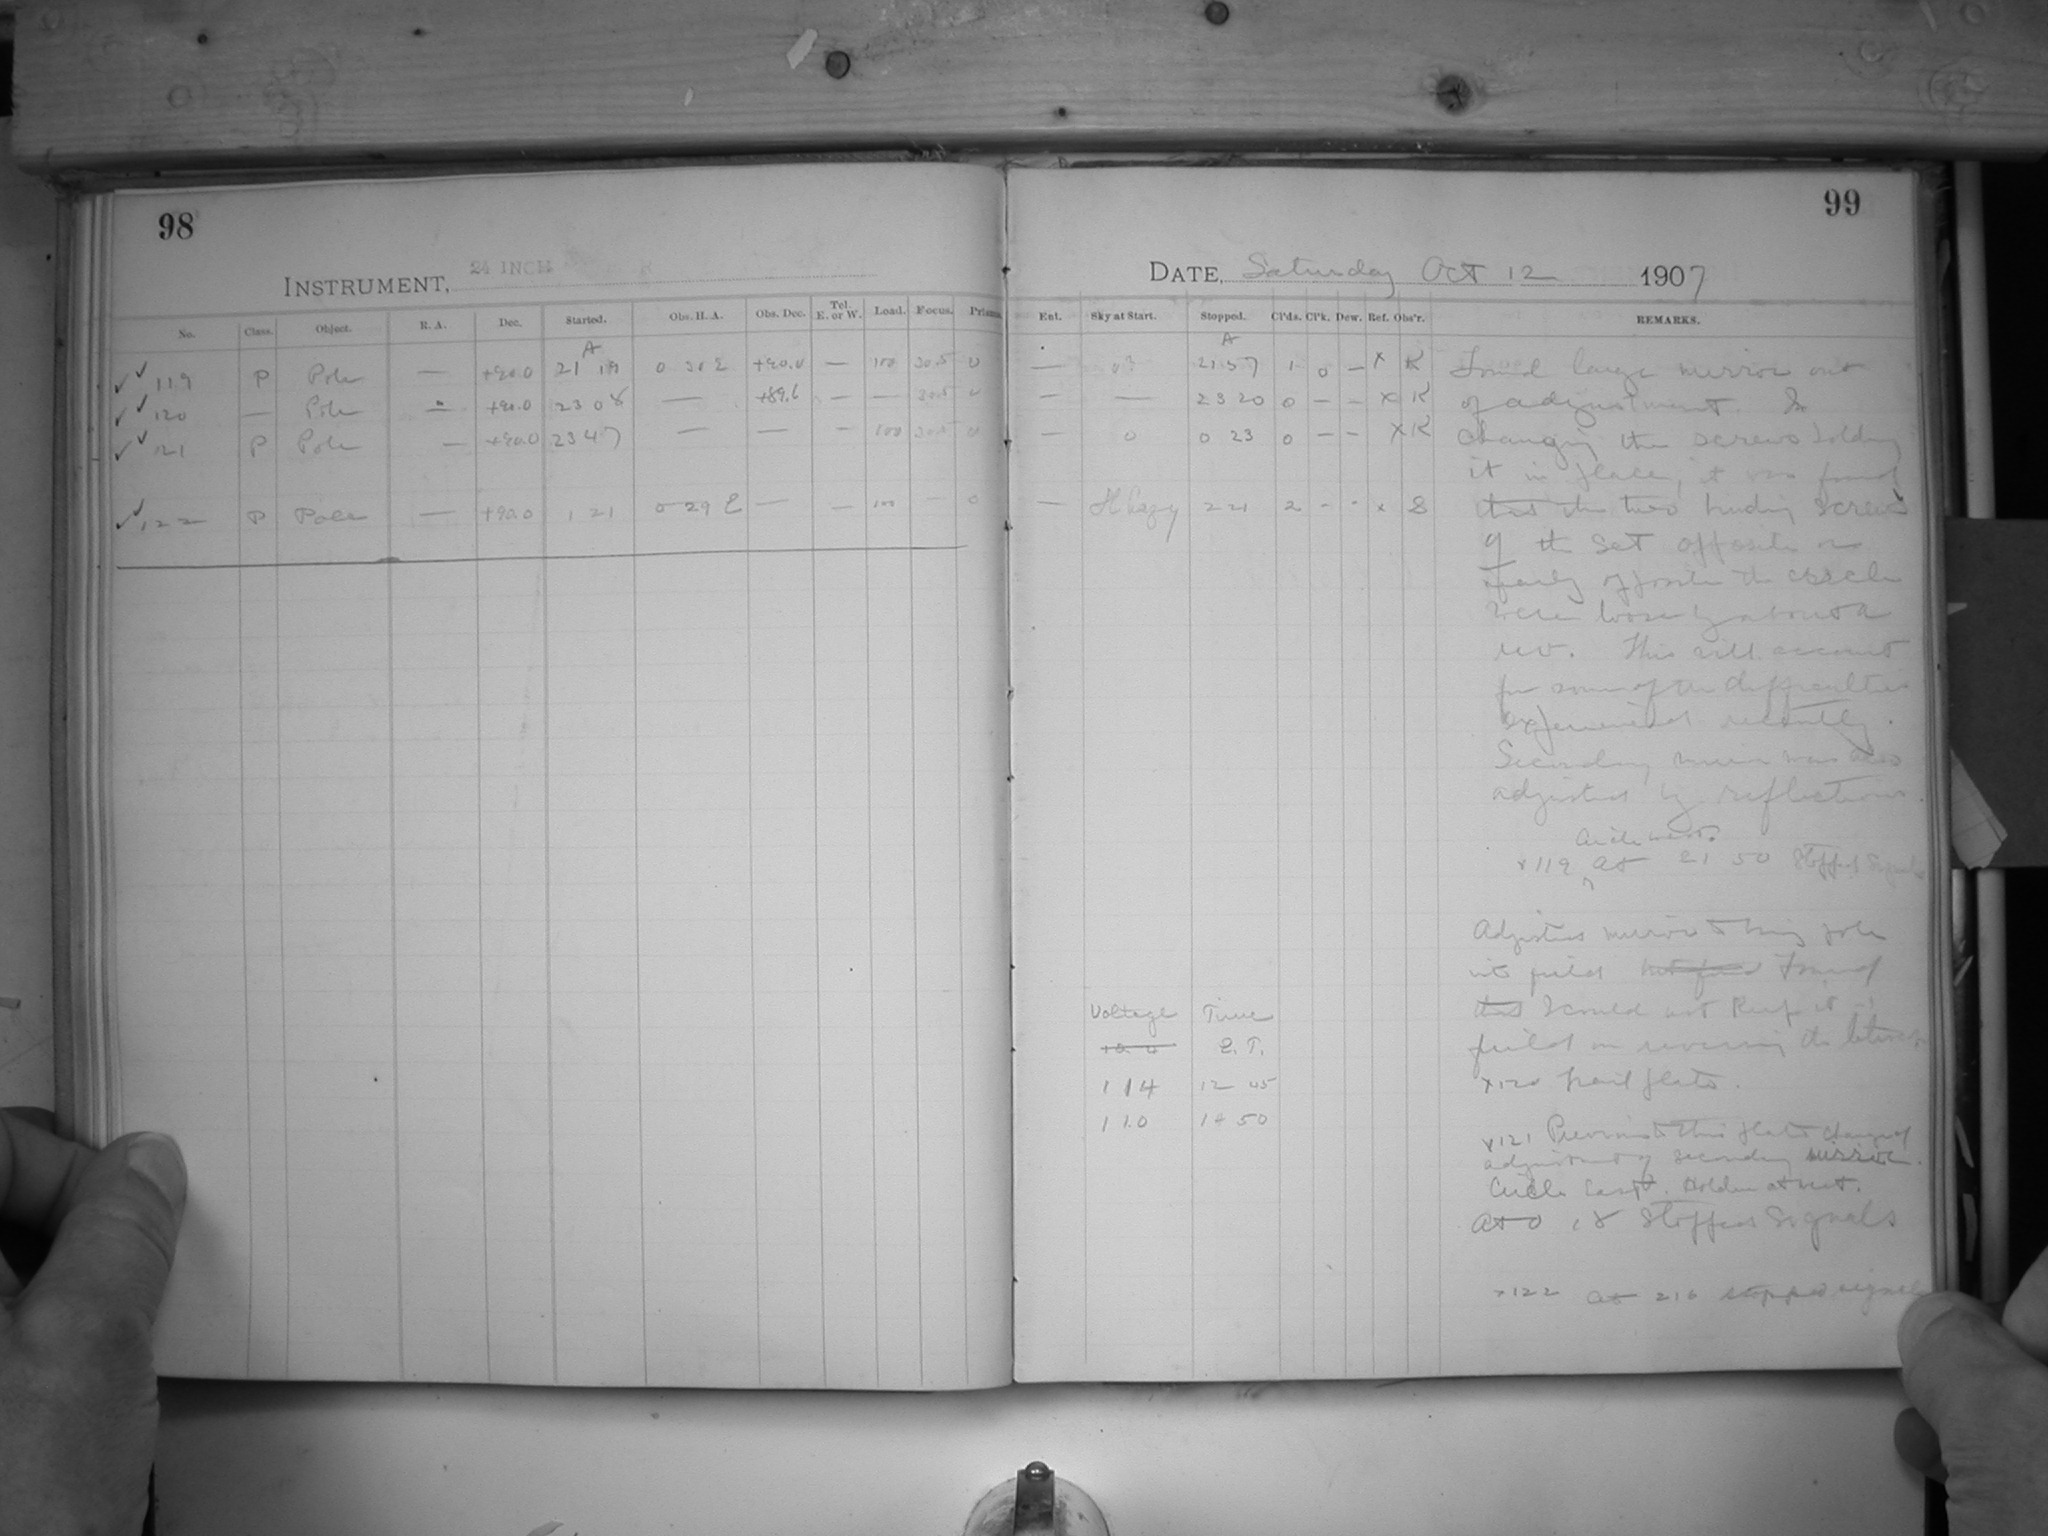 98
INSTRUMENT, 24 INCH
No. Class. Object. R. A. Dec. Started. Obs. H. A. Obs. Dec. Tel. E. or W. Load. Focus. Prisms
A
119 P Pole — +90.0 21 19 0 30 E +90.0 — 100 30.5 0
120 — Pole — +90.0 23 08 — +89.6 — — 30.5 0
121 P Pole — +90.0 23 47 — — — 100 30.5 0
122 P Pole — +90.0 1 21 0 29 E — — 100 — 0
99
DATE, Saturday Oct 12 1907
Ent. Sky at Start. Stopped. Cl'ds. Cl'k. Dew. Ref. Obs'r. REMARKS.
A
— 21 57 1 0 — x K
— — 23 20 0 — — x K
— 0 0 23 0 — — x K
— Hazy 2 21 2 - - x S
Found large mirror out
of adjustment. In
changing the screws holding
it in place, it was found
that the two binding screws
of the set opposite or
nearly opposite the circle
were loose by about a
rev. This will account
for some of the difficulties
experienced recently.
Secondary mirror was also
adjusted by reflections.
Circle west.
x119 at 21 50 Stopped Signals
Adjusted mirror to bring pole
into field Found
that I could not keep it in
field on reversing the telescope
x120 trail plate.
x121 Previous to this plate changed
adjustment of secondary mirror.
Circle East. Holder at rest.
At 0 18 Stopped Signals
x122 at 2 16 stopped signals
Voltage Time
E. T.
114 12 45
110 14 50